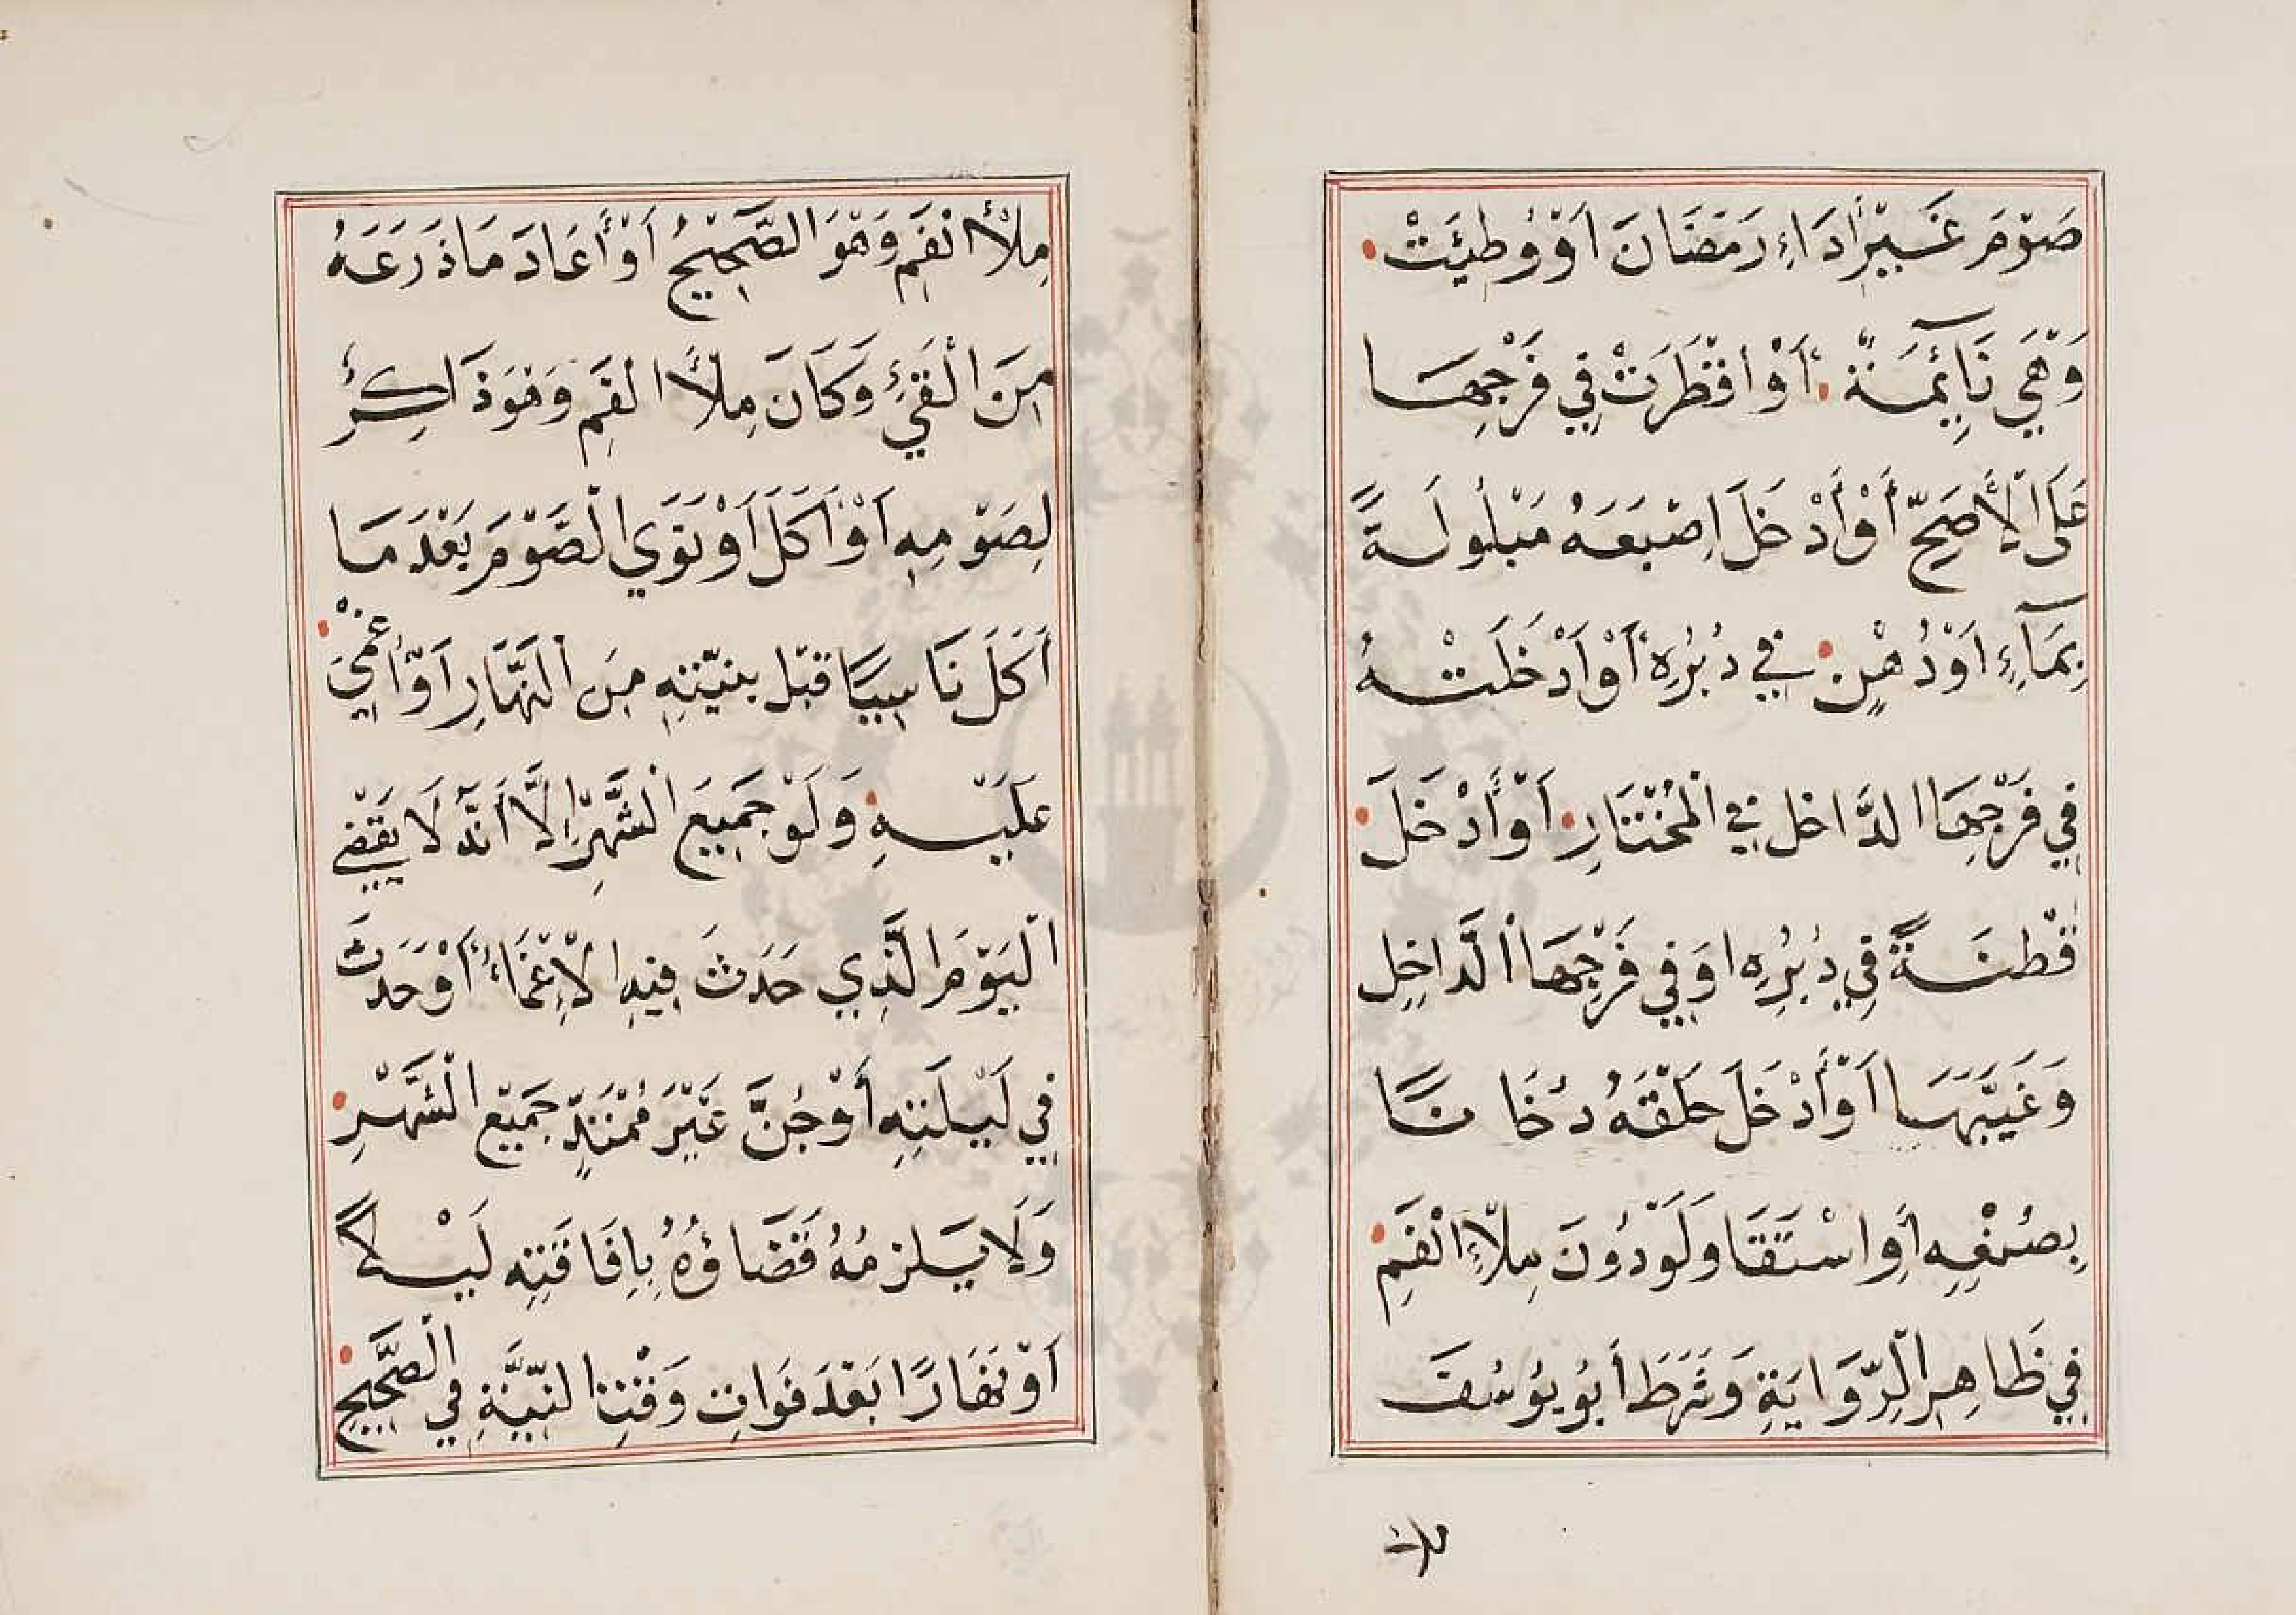 صَوْمَ غَيْرِ أَدَاءِ رَمَضَانَ أَوْ وُطِئَتْ
وَهِيَ نَائِمَةٌ أَوْ اقْطَرَتْ فِي فَرْجِهَا
عَلَى الْأَصَحِّ أَوْ أَدْخَلَ اِصْبَعَهُ مَبْلُولَةً
بِمَاءٍ اَوْ دُهْنٍ فِي دُبُرِهِ أَوْ اَدْخَلَتْهُ
فِي فَرْجِهَا الدَّاخل فِي الْمُخْتَارِ أَوْ أَدْخَلَ
قُطْنَةً فِي دُبُرِهِ اوَ فِي فَرْجِهَا الدَّاخِلِ
وَغَيَّبَهَا اَوْ أَدْخَلَ حَلْقَهُ دُخَانًا
بِصُنْعِهِ أَوِ اسْتَقَا وَلَوْ دُونَ مِلْأِ الْفَمِ
فِي ظَاهِرِ الرِّوَايَةِ وَشَرَطَ أَبُو يُوسُفَ
ملأ
مِلْأَ الْفَمِ وَهُوَ الصَّحِيْحُ أَوْ أَعَادَ مَا ذَرَعَهُ
مِنَ الْقَيْءِ وَكَانَ مِلْأَ الْفَمِ وَهُوَ ذَاكِرٌ
لِصَوْمِهِ اَوْ اَكَلَ اَوْ نَوَي الْصَّوْمَ بَعْدَ مَا
اَكَلَ نَاسِيًا قَبْل بنيَّتِهِ مِنَ الْنَّهَارِ اَوْ أُغْمِيَ
عَلَيْهِ وَلَوْ جَمِيعَ الشَّهْرِ إِلَّا أَنَّهُ لَا يَقْضِي
الْيَوْمَ الَّذِي حَدَثَ فِيهِ الْاِغْمَاءُ أَوْ حَدَثَ
فِي لَيْلَتِهِ أَوْ جُنَّ غَيْرَ مُمْتَدٍّ جَمِيْعَ الْشَّهْرِ
وَلَا يَلزمُهُ قَضَاؤُهُ بِاِفَاقَتِه لَيْلاً
اَوْ نَهَارًا بَعْدَ فَوَاتِ وَقْتِ النِّيَّةِ فِي الْصَّحِيحِ